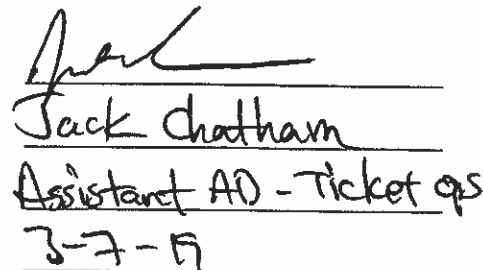 Jack Chatham
Assistant AD - Ticket ops
3-7-19